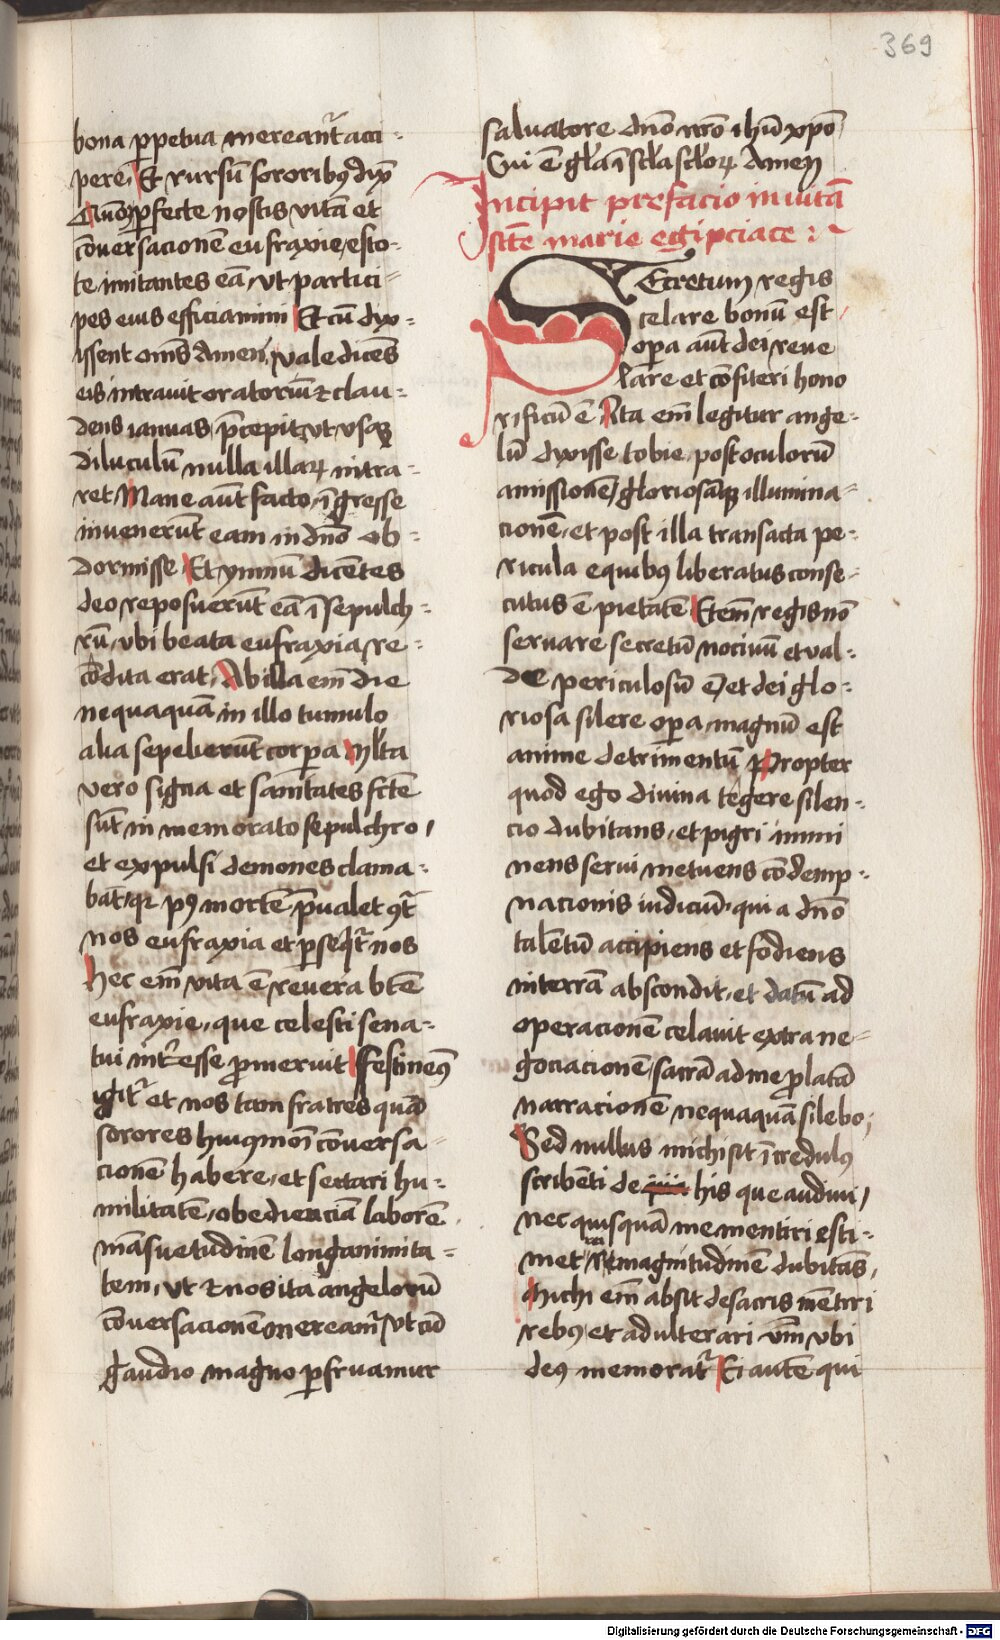 369
bona ꝑpetua mereant᷑ acci-
pere Et rursū sororibꝫ dix̄
Quō ꝑfecte nostis vitā et
cōuersacionē eufraxie, esto-
te imitantes eā, vt partici-
pes eius efficiamini Et cū dix-
issent om̄s Amen, vale dicēs
eis intrauit oratoriū ⁊ clau-
dens ianuas, p̄cepit, vt vsqꝫ
diluculū nulla illaꝝ intra-
ret Mane aūt facto, īgresse
inuenerūt eam in dn̄o ob-
dormisse Et ymnū dicētes
deo reposuerūt eā ī sepulch-
rū, vbi beata eufraxia re-
cōdita erat, Ab illa em̄ die
nequaquā in illo tumulo
alia sepelierūt corpa Ml̄ta
vero signa et sanitates fc̄te
sūt in memorato sepulchro,
et expulsi demones clama-
bāt, qꝛ pꝰ mortē p̄ualet ꝯt᷑
nos eufraxia et ꝑseq̄t᷑ nos
Hec em̄ vita ē reuera bt̄e
eufraxie, que celesti sena-
tui int̄esse ꝓmeruit Festinemꝰ
igit᷑ et nos tam fratres quā
sorores huiꝰmōi cōuersa-
cionē habere, et sectari hu-
militatē, obedienciā laborē
māsuetudinē longanimita-
tem, vt ⁊ nos ita angelorū
cōuersacionē meream᷑ vt cū
gaudio magno ꝑfruamur
saluatore dn̄o nr̄o ihū xp̄o
Cui ē gl̄a ī scl̄a scl̄oꝝ Amen
Incipit prefacio in vitā
sc̄te marie egipciace :~
SEcretum regis
celare bonū est,
opa aūt dei reue
lare et cōfiteri hono
rificū ē Ita em̄ legitur ange-
lū dixisse tobie, post oculorū
amissionē, gloriosāqꝫ illumina-
cionē, et post illa transacta pe-
ricula e quibꝫ liberatus conse-
cutus ē pietatē Etem̄ regis nō
seruare secretū nociuū et val-
de periculosū ē, et dei glo-
riosa silere opa, magnū est
anime detrimentū Propter
quod ego diuina tegere silen-
cio dubitans, et pigri immi
nens serui metuens cōdemp-
nacionis iudiciū, qui a dn̄o
talētū accipiens et fodiens
in terrā abscondit, et datū ad
operacionē celauit extra ne-
gociacionē, sacrā ad me ꝓlatā
narracionē nequaquā silebo,
Sed nullus michi sit īcredulꝰ
scribēti de his que audiui,
nec quisquā me mentiri esti-
met, magnitudinē dubitās,
Michi em̄ absit de sacris mētiri
rebꝫ et adulterari vm̄ vbi
deꝰ memorat᷑ Ei autē qui
Digitalisierung gefördert durch die Deutsche Forschungsgemeinschaft - DFG